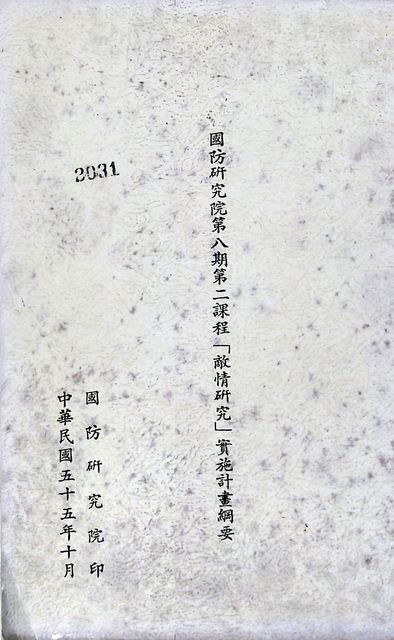 國防研究院第八期第二課程「敵情研究」實施計畫綱要
2031
國防研究院印
中華民國五十五年十月